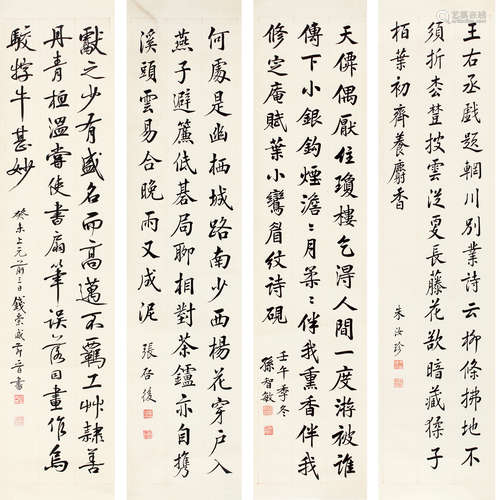 王右丞戲題輞川別業詩云柳條拂地不
須折枩樹披雲從更長藤花欲暗藏猱子
柏葉初齊養麝香
朱汝珍
天僊偶厭住瓊樓乞得人間一度游被誰
傳下小銀鈎煙澹澹月柔柔伴我熏香伴我
修定庵賦葉小鸞眉紋詩硯
壬午季冬
孫智敏
何處是幽栖城路南少西楊花穿戶入
燕子避簾低棊局聊相對茶鑪亦自攜
溪頭雲易合晚雨又成泥
張啓後
獻之少有盛名而高邁不羈工艸隸善
丹青桓溫嘗使書扇筆誤落因畫作烏
駮牸牛甚妙
癸未上元前三日錢崇威節音書